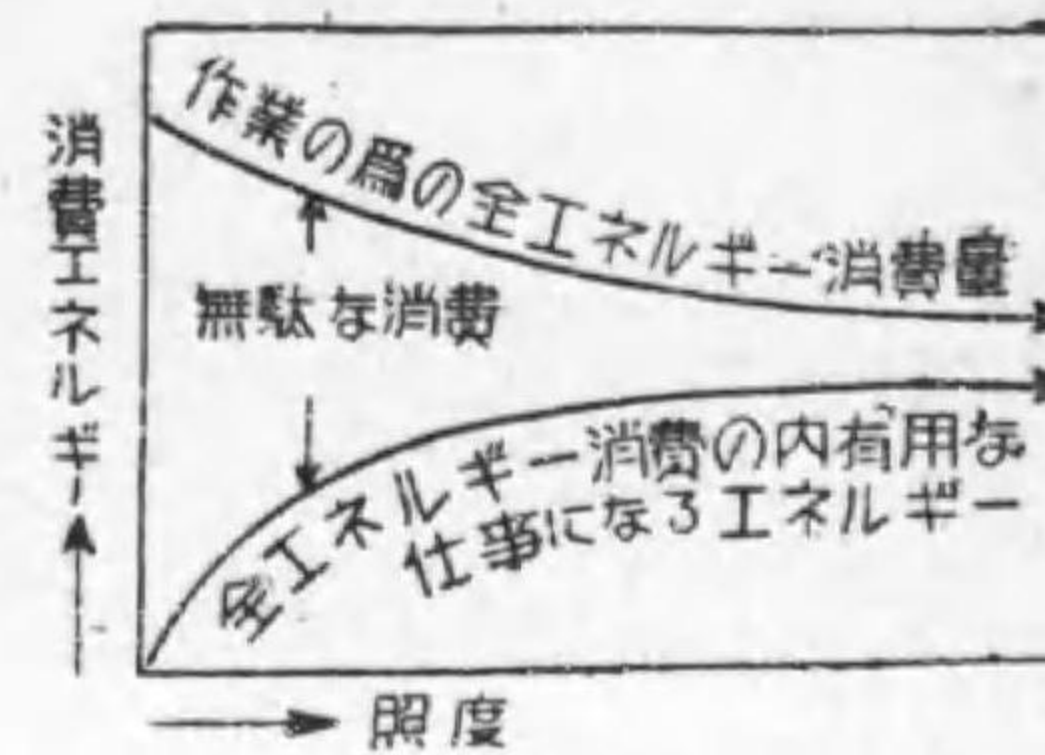 消費エネルギー
作業の爲の全エネルギー消費量
無駄な消費
全エネルギー消費の内有用な
仕事になるエネルギー
照度